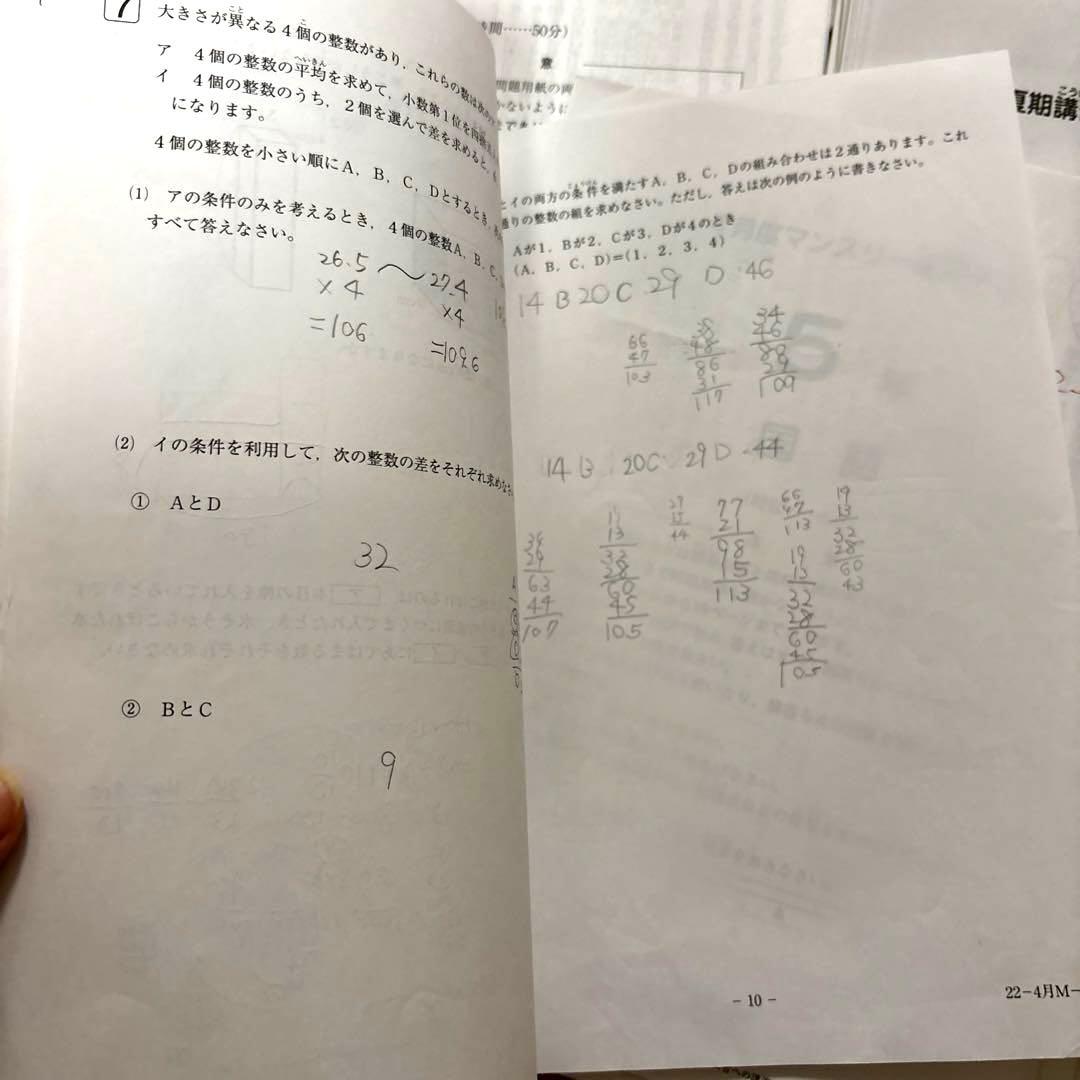 7
大きさが異なる4個の整数があり，これらの数は次の
ア　4個の整数の平均を求めて，小数第1位を四捨五入
イ　4個の整数のうち，2個を選んで差を求めると，6
になります。
4個の整数を小さい順にA，B，C，Dとするとき，
(1)　アの条件のみを考えるとき，4個の整数A，B，C，
すべて答えなさい。
26.5 〜 27.4
×4 ×4
=106 =109.6
(2)　イの条件を利用して，次の整数の差をそれぞれ求めなさ
①　AとD
32
②　BとC
9
間……50分）
意
問題用紙の両
かないように
夏期講
とイの両方の条件を満たすA，B，C，Dの組み合わせは2通りあります。これ
通りの整数の組を求めなさい。ただし，答えは次の例のように書きなさい。
Aが1，Bが2，Cが3，Dが4のとき
(A，B，C，D)=(1，2，3，4)
14 B 20 C 29 D 46
66
47
103
38
48
86
31
117
34
46
80
29
109
14 B 20 C 29 D 44
34
29
63
44
107
13
32
28
60
45
105
29
15
44
77
21
98
15
113
66
47
113
19
13
32
28
60
45
105
19
13
32
28
60
43
- 10 -
22－4月M－